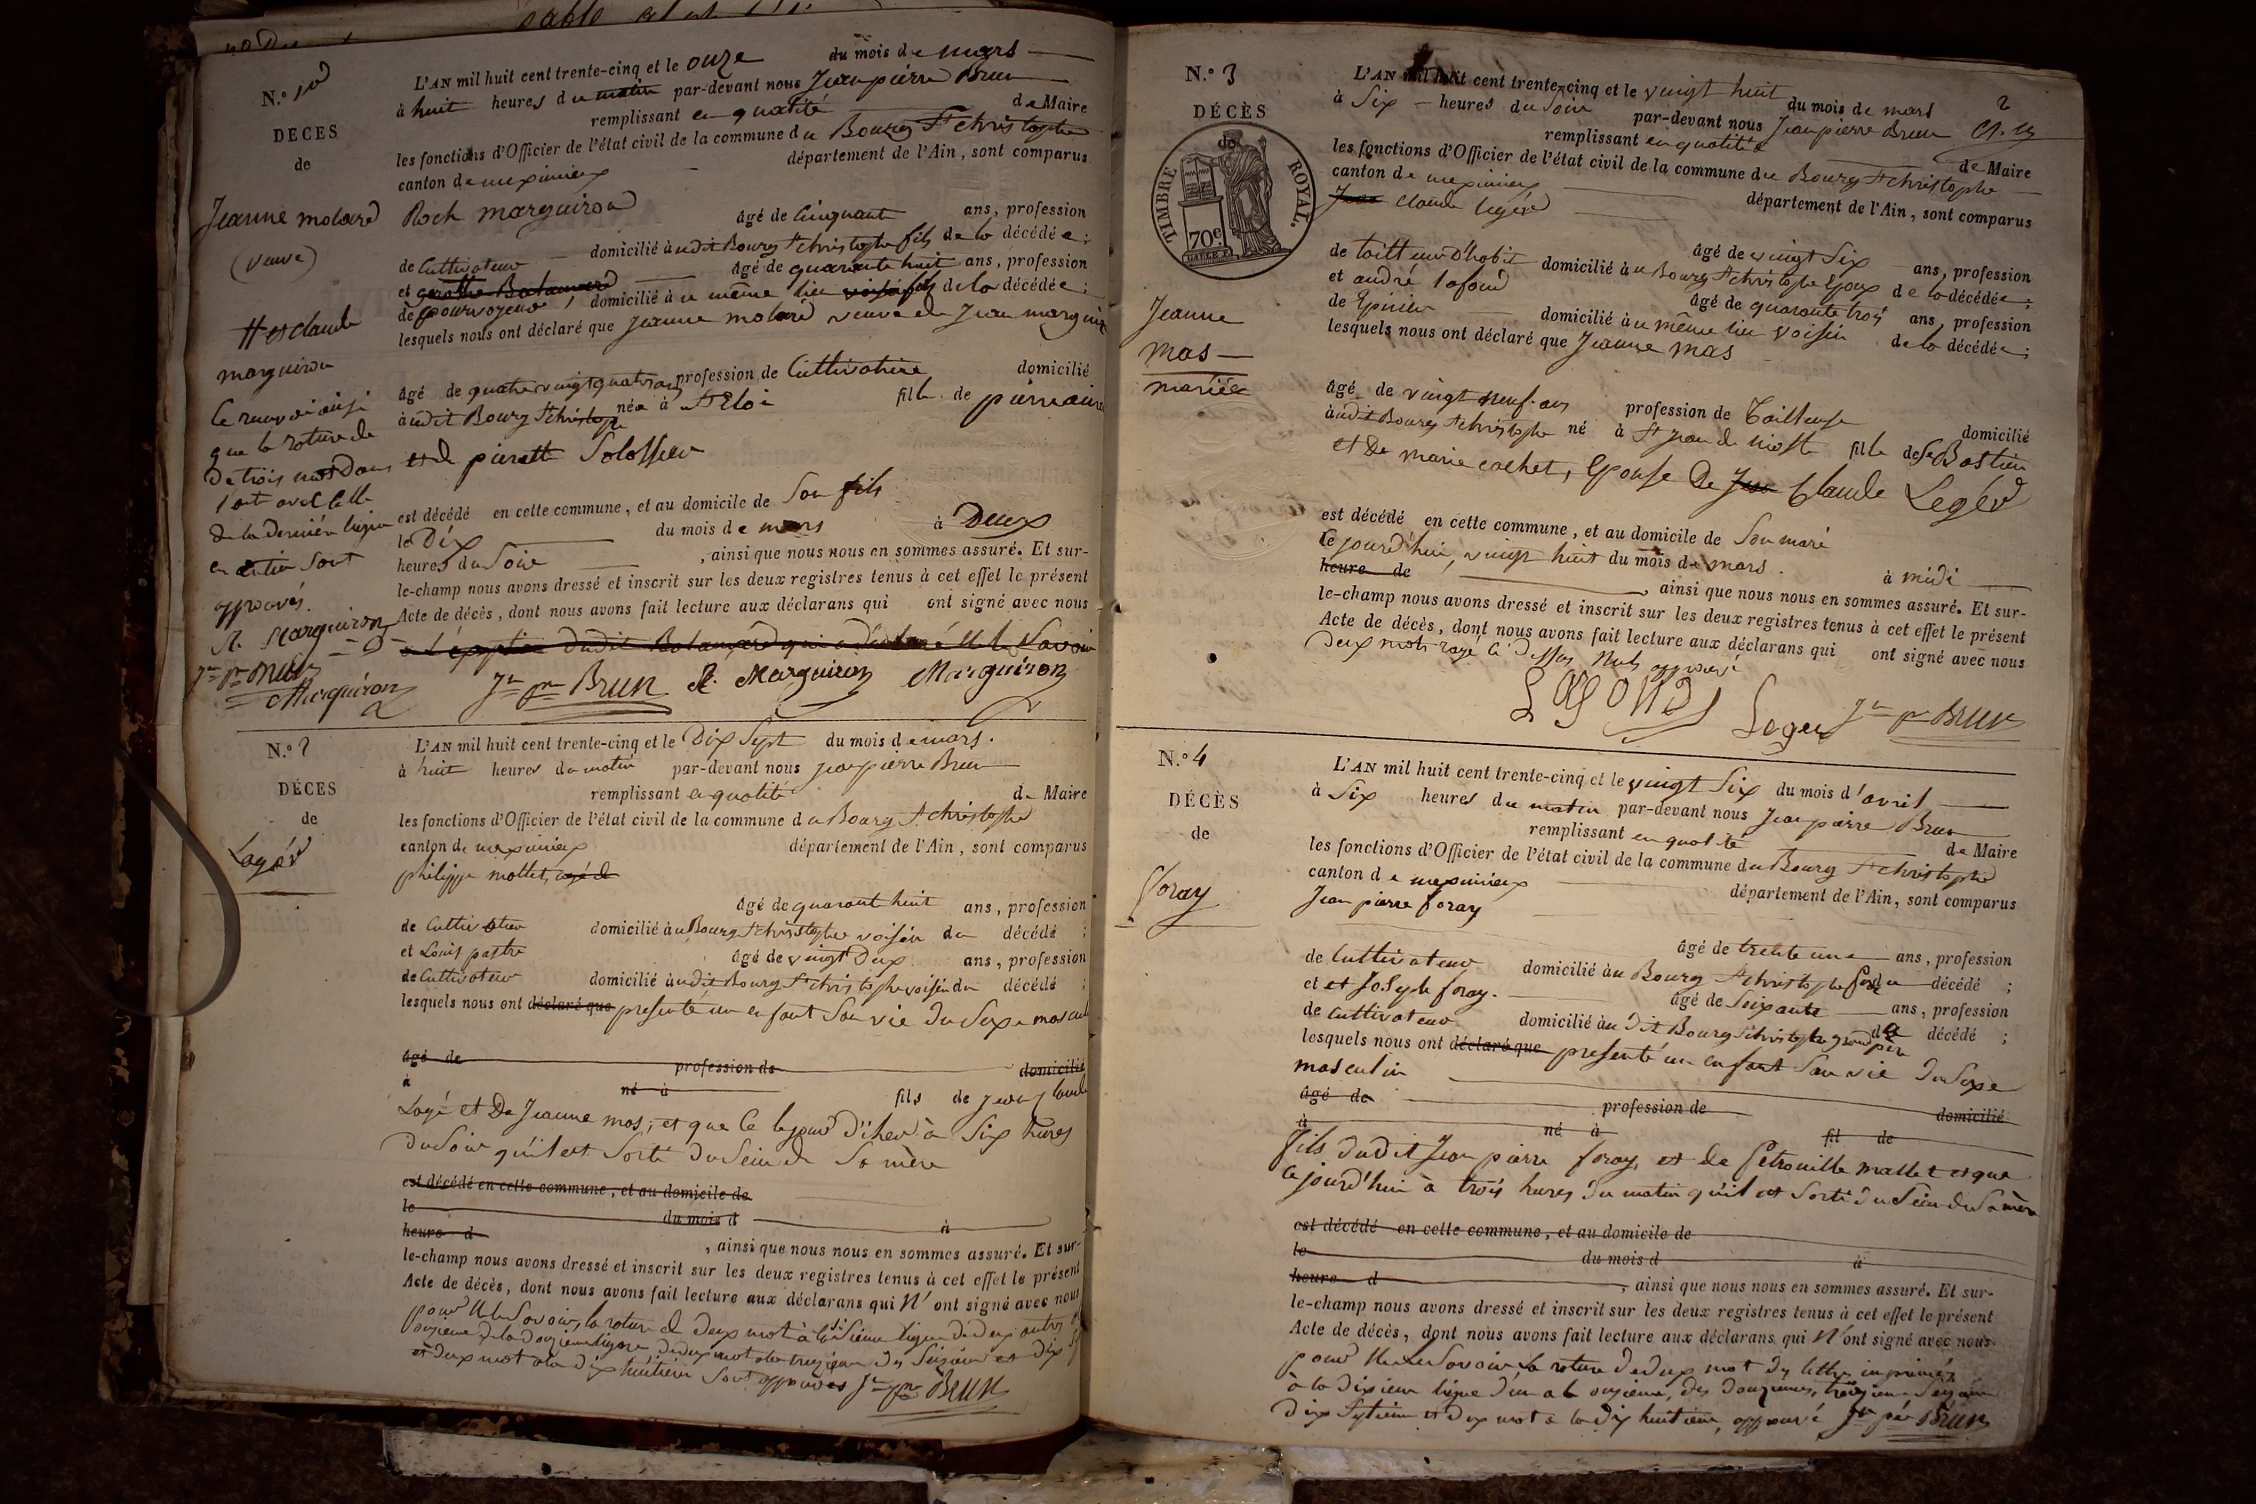 N.° 1er
DÉCÈS
de
Jeanne molard
(veuve)
L'AN mil huit cent trente-cinq et le onze du mois de mars
à huit heures du matin par-devant nous Jean pierre Brun
remplissant en qualité de Maire
les fonctions d'Officier de l'état civil de la commune du Bourg St christophe
canton de meximieux département de l'Ain, sont comparus
Roch marguiron
âgé de cinquant ans, profession
de Cultivateur domicilié audit Bourg St christophe fils de la décédée;
et
âgé de quarante huit ans, profession
de pourvoyeur, domicilié au même lieu fils de la décédée;
lesquels nous ont déclaré que Jeanne molard veuve de Jean marguiron
âgé de quatre vingt quatre ans profession de Cultivatrice domicilié
audit Bourg St christophe née à St Eloi fille de pierre
et de pierrette
est décédé en cette commune, et au domicile de Son fils
le Dix du mois de mars à Deux
heures du Soir, ainsi que nous nous en sommes assuré. Et sur-
le-champ nous avons dressé et inscrit sur les deux registres tenus à cet effet le présent
Acte de décès, dont nous avons fait lecture aux déclarans qui ont signé avec nous
Jn pre Brun R. Marguiron Marguiron
et claude
marguiron
Ce renvoi ainsi
que la roture de
De trois mots dans
l'acte avec celle
de la dernière ligne
en entier sont
approuvés.
R. Marguiron
Jn pre Brun
Marguiron
N.° 2
DÉCÈS
de
Logér
L'AN mil huit cent trente-cinq et le Dix Sept du mois de mars.
à huit heures du matin par-devant nous Jean pierre Brun
remplissant en qualité de Maire
les fonctions d'Officier de l'état civil de la commune du Bourg St christophe
canton de meximieux département de l'Ain, sont comparus
philippe mollet, agé de
âgé de quarant huit ans, profession
de Cultivateur domicilié au Bourg St christophe voisin du décédé;
et Louis
âgé de vingt Deux ans, profession
de Cultivateur domicilié audit Bourg St christophe voisin du décédé;
lesquels nous ont déclaré que presenté un enfant San vie du Sexe masculin
âgé de profession de domicilié
à né à fils de Jean Claude
Logé et De Jeanne mas, et que Ce le jour D'iher à Six hures
Du Soir qu'il est Sorti Du Sein de Sa mère
est décédé en cette commune, et au domicile de
le du mois d à
heure d
, ainsi que nous nous en sommes assuré. Et sur-
le-champ nous avons dressé et inscrit sur les deux registres tenus à cet effet le présent
Acte de décès, dont nous avons fait lecture aux déclarans qui N' ont signé avec nous
pour Ne le Savoir, la roture de deux mot à la
et deux mot a la dix huitième Sont approuvés Jn pre Brun
N.° 3
DÉCÈS
de
TIMBRE ROYAL.
70c.
Jeanne
mas
mariée
2
L'AN mil huit cent trente-cinq et le vingt huit du mois de mars
à Six heures du Soir par-devant nous Jean pierre Brun
remplissant en qualité de Maire
les fonctions d'Officier de l'état civil de la commune du Bourg St christophe
canton de meximieux département de l'Ain, sont comparus
Jean claude Legér
âgé de vingt Six ans, profession
de tailleur D'habit domicilié au Bourg St christophe Epoux de la décédée;
et andré lafond âgé de quarante trois ans, profession
de Epicier domicilié au même lieu voisin de la décédée;
lesquels nous ont déclaré que Jeanne mas
âgé de vingt neuf ans profession de Tailleuse domicilié
audit Bourg St christophe né à St Jean de niost fille de Sebastien
et De marie cochet, Epouse De Jean Claude Legér
est décédé en cette commune, et au domicile de Son mari
le jourd'hui, vingt huit du mois de mars. à midi
heure de, ainsi que nous nous en sommes assuré. Et sur-
le-champ nous avons dressé et inscrit sur les deux registres tenus à cet effet le présent
Acte de décès, dont nous avons fait lecture aux déclarans qui ont signé avec nous
Deux mots rayé Ci Dessus Nuls approuvé
Lafond Leger Jn pre Brun
N.° 4
DÉCÈS
de
foray
L'AN mil huit cent trente-cinq et le vingt Six du mois d'avril
à Six heures du matin par-devant nous Jean pierre Brun
remplissant en qualité de Maire
les fonctions d'Officier de l'état civil de la commune du Bourg St christophe
canton de meximieux département de l'Ain, sont comparus
Jean pierre foray
âgé de trente une ans, profession
de Cultivateur domicilié au Bourg St christophe du décédé;
et et Joseph foray. âgé de Soixante ans, profession
de Cultivateur domicilié au Dit Bourg St christophe grand père du décédé;
lesquels nous ont déclaré que presenté un enfant San vie Du Sexe
masculin
âgé de profession de domicilié
à né à fil de
fils dudit Jean pierre foray, et de Petronille mallet et que
Ce jourd'hui à trois hures Du matin qu'il est Sorti du Sein du Sa mère
est décédé en cette commune, et au domicile de
le du mois d à
heure d, ainsi que nous nous en sommes assuré. Et sur-
le-champ nous avons dressé et inscrit sur les deux registres tenus à cet effet le présent
Acte de décès, dont nous avons fait lecture aux déclarans qui N'ont signé avec nous
pour Ne le Savoir La roture De deux mot Des lettres imprimées
à la Dixieme ligne D'un a l onzieme, des Douziemes, treizieme Seizieme
Dix Septieme et deux mot a la Dix huitieme, approuvé Jn pre Brun